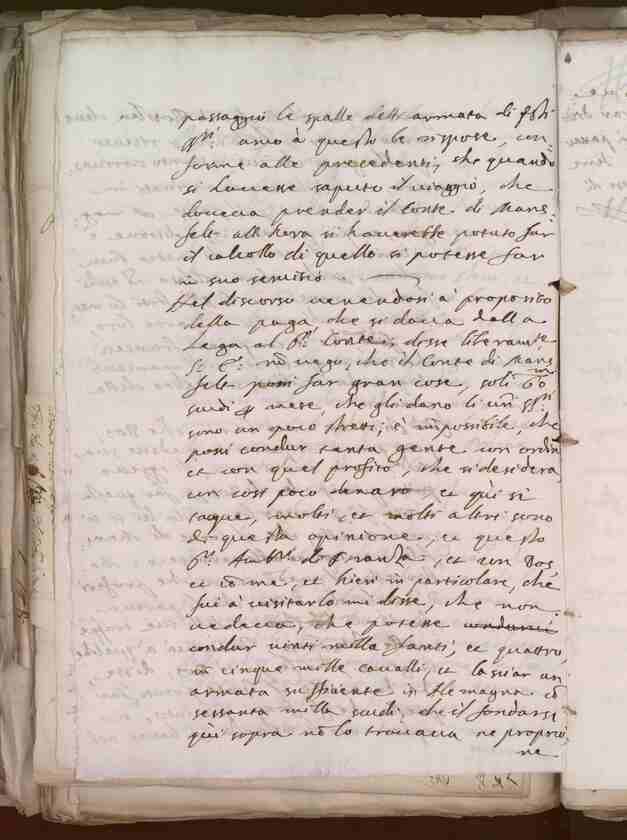 passaggio le spalle dell'armata di questi
SS.ri anco à questo le risposi, con=
forme alle precedenti, che quando
si havesse saputo il viaggio, che
doveva prender il Conte di Mans=
felt all'hora si haverebbe potuto far
il calcollo di quello si potesse far
in suo servitio
Nel discorso venendosi a' proposito
della paga che si dava dalla
Lega al S.r Conte, disse liberam.te
S. E. nõ nego, che il Conte di Mans
felt possi far gran cose, soli 60 m
scudi p mese, che gli dano li v.ri SS.ri
sono un poco stretti, è impossibile, che
possi condur tanta gente con ordine
et con quel profitto, che si desidera
con così poco denaro et quì si
tacque, molti, et molti altri sono
di questa opinione, et questo
S.r Amb.r di Franza, et un Dos,
et cõ me, et hieri in particolare, che
fui à visitarlo mi disse, che non
vedeva, che potesse condurvi
condur vinti mille fanti, et quattro,
in cinque mille cavalli, et lasciar un'
armata sufficiente in Alemagna cõ
sessanta mille scudi, che il fondarsi
quì sopra nõ lo trovava ne proprio,
ne